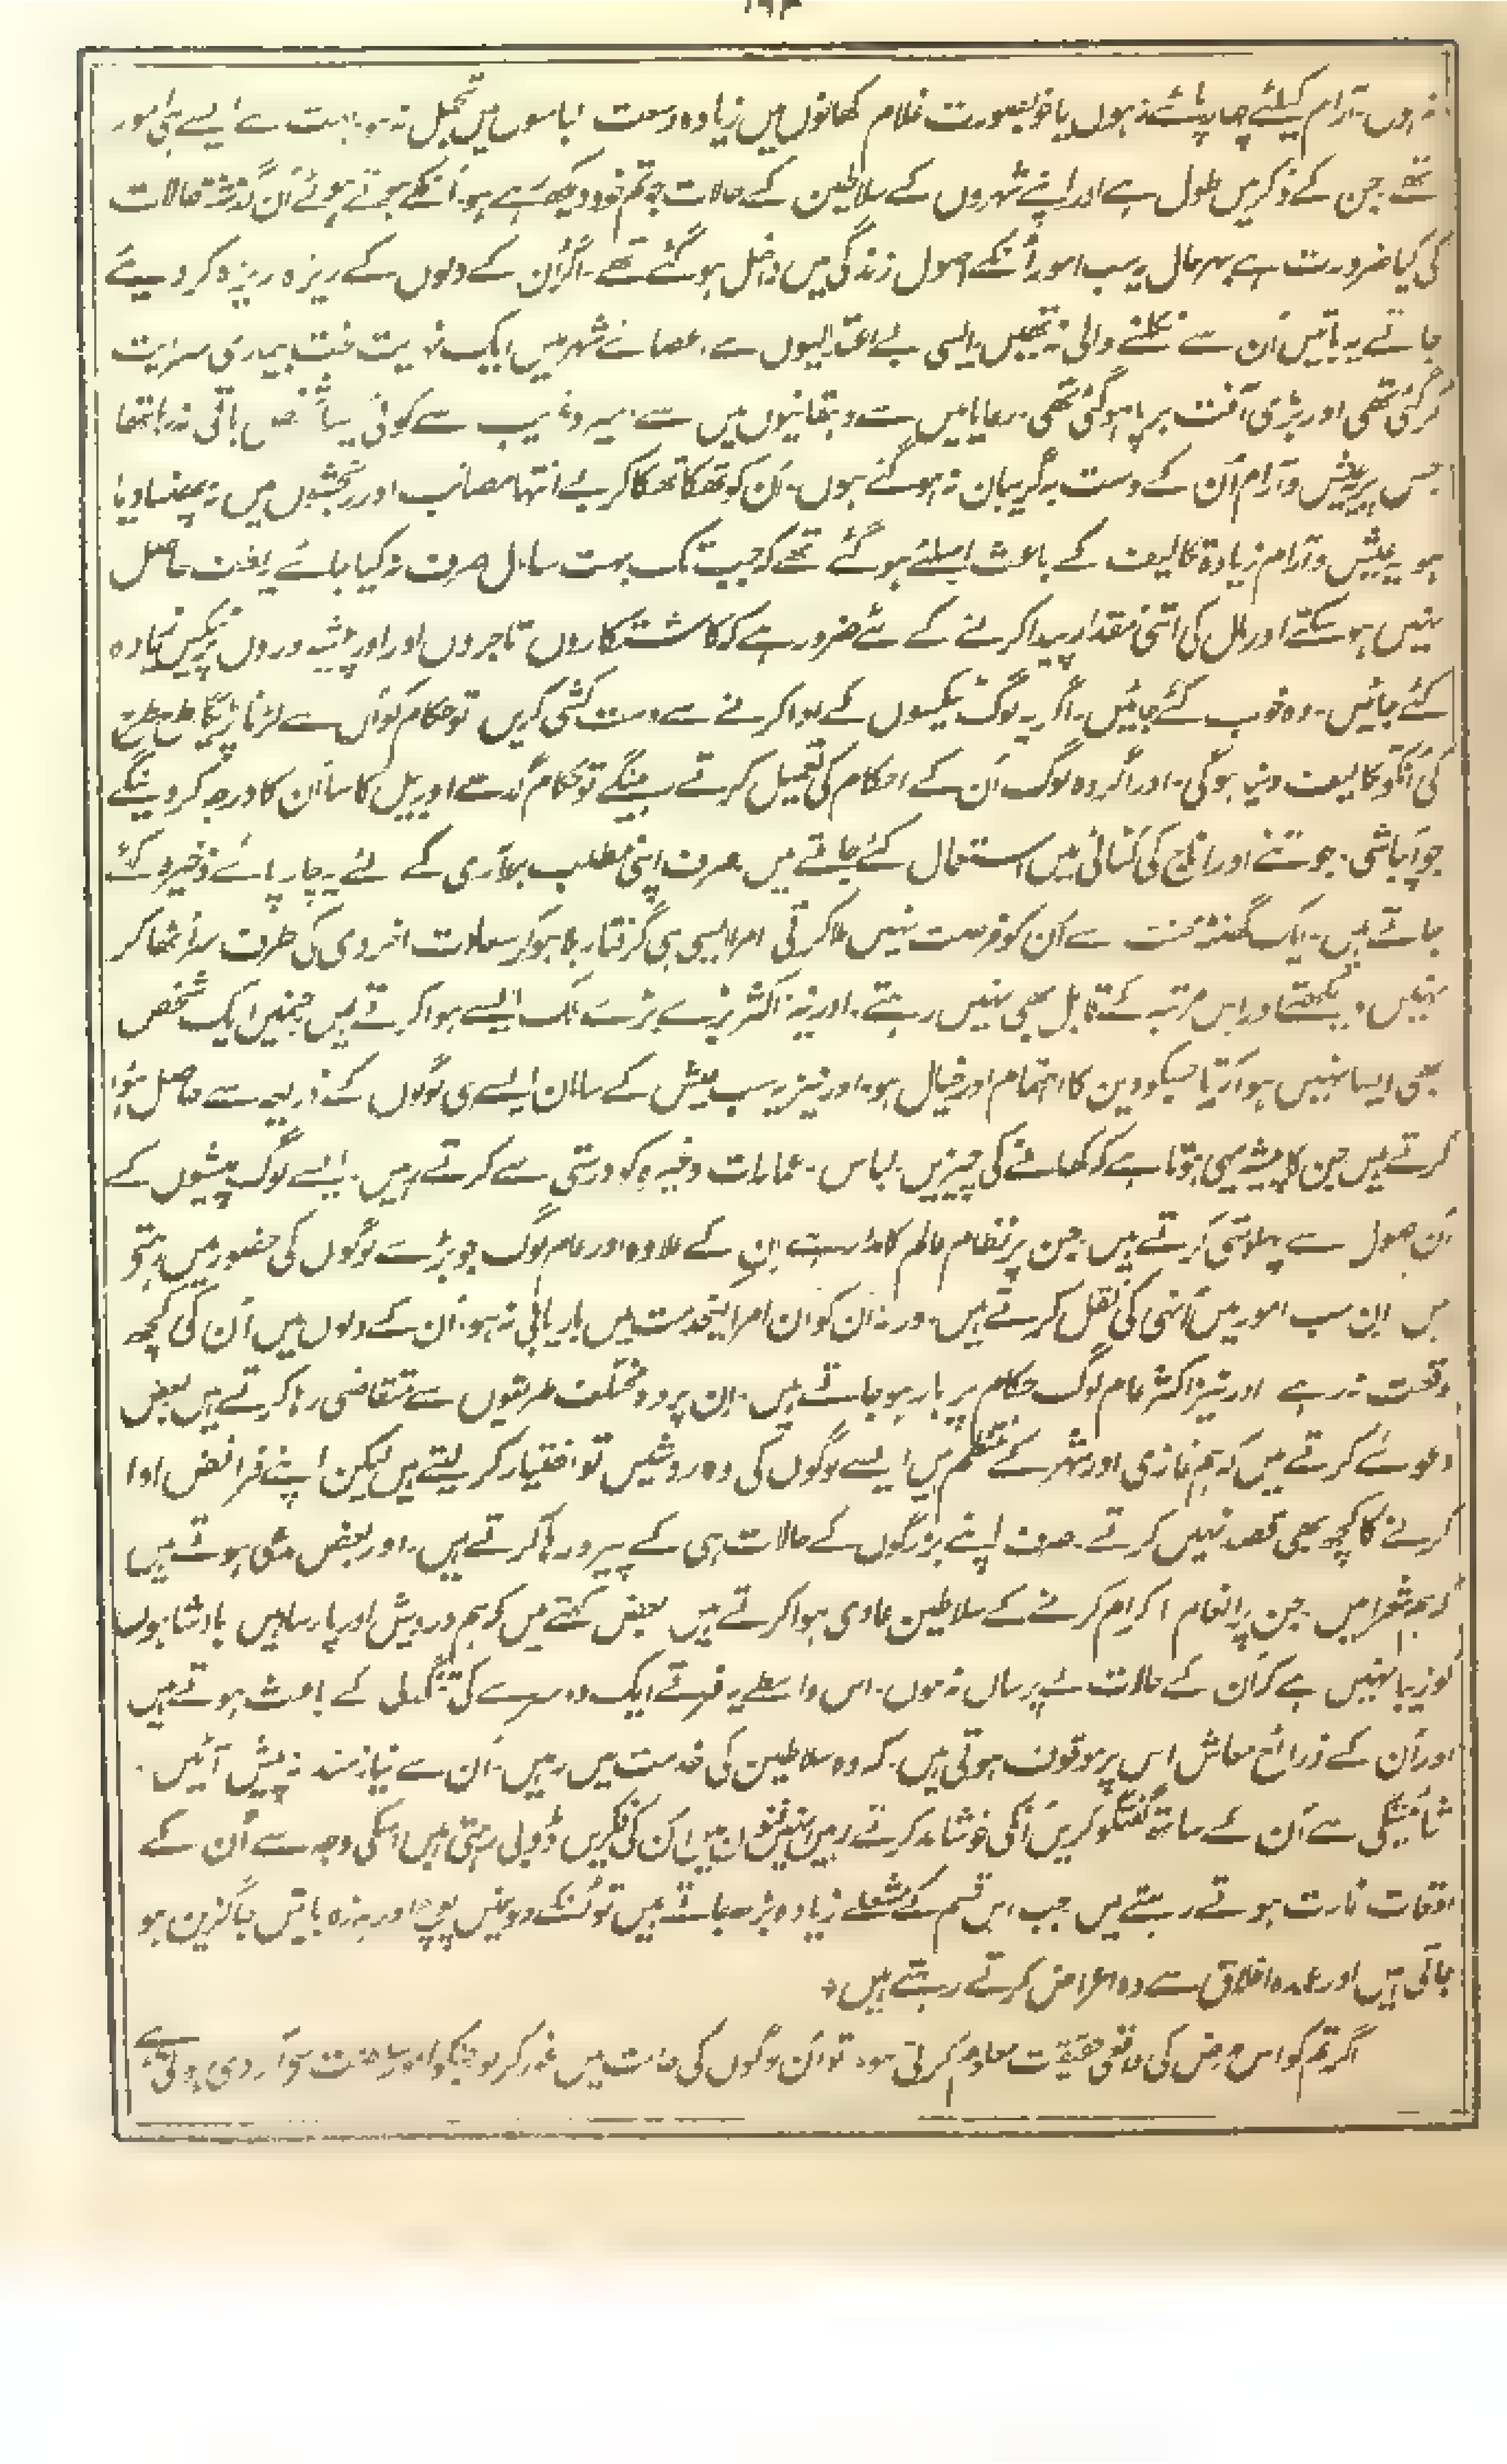 نہ ہوں۔ آرام کیلئے چارپائے نہ ہوں یا خوبصورت غلام کھانوں میں زیادہ وسعت لباسوں میں تجمل نہ ہو بہت سے ایسے ہی امور
تھے جن کے ذکر میں طول ہے اور اپنے شہروں کے سلاطین کے حالات جو تم خود دیکھ رہے ہو۔ انکے ہوتے ہوئے اُن گذشتہ حالات
کی کیا ضرورت ہے بہرحال یہ سب امور اُنکے اصول زندگی میں داخل ہو گئے تھے۔ اگر اُن کے دلوں کے ریزہ ریزہ کر دیے
جاتے یہ باتیں اُن سے نکلنے والی نہ تھیں۔ ایسی بے اعتدالیوں سے اعضائے شہر میں ایک نہایت سخت بیماری سرایت
کر گئی تھی اور بڑی آفت برپا ہو گئی تھی۔ رعایا میں سے دہقانیوں میں سے امیر و غریب سے کوئی ایسا شخص باقی نہ رہا تھا
جس پر یہ عیش و آرام اُن کے دست بہ گریبان نہ ہو گئے ہوں۔ اُن کو تھکا تھکا کر بے انتہا مصائب اور رنجشوں میں نہ پھنسا دیا
ہو یہ عیش و آرام زیادہ تکالیف کے باعث اسلئے ہو گئے تھے کہ جب تک بہت سا مال صرف نہ کیا جائے یہ لغت حاصل
نہیں ہو سکتے اور مال کی اتنی مقدار پیدا کرنے کے لئے ضرور ہے کہ کاشتکاروں تاجروں اور اور پیشہ وروں پر ٹیکس زیادہ
کئے جائیں۔ وہ خوب کئے جائیں۔ اگر یہ لوگ ٹیکسوں کے ادا کرنے سے دست کشی کریں تو حکام کو اُن سے لڑنا پڑیگا طرح طرح
کی اُنکو تکالیف دینا ہوگی۔ اور اگر وہ لوگ اُن کے احکام کی تعمیل کرتے رہینگے تو حکام گدھے اور بیل کا سا اُن کا درجہ کر دینگے
جو آبپاشی۔ جوتنے اور اناج کی کٹائی میں استعمال کئے جاتے ہیں صرف اپنی مطلب برآری کے لئے یہ چارپائے ذخیرہ کئے
جاتے ہیں۔ ایک گھنٹہ محنت سے اُن کو فرصت نہیں ملا کرتی امرا ایسی ہی گرفتار بلا ہو کر سعادت اخروی کی طرف سر اُٹھا کر
نہیں دیکھتے اور اس مرتبہ کے قابل بھی نہیں رہتے۔ اور نیز اکثر بڑے بڑے ملک ایسے ہوا کرتے ہیں جنمیں ایک شخص
بھی ایسا نہیں ہوا کرتا جسکو دین کا اہتمام اور خیال ہو۔ اور نیز یہ سب عیش کے سامان ایسے ہی لوگوں کے ذریعہ سے حاصل ہؤا
کرتے ہیں جن کا پیشہ یہی ہوتا ہے کہ کھانے کی چیزیں۔ لباس۔ عمارات وغیرہ کو درستی سے کرتے ہیں۔ ایسے لوگ پیشوں کے
اُن اصول سے پہلو تہی کرتے ہیں جن پر نظام عالم کا مدار ہے ان کے علاوہ اور عام لوگ جو بڑے لوگوں کی حضور میں رہتے
ہیں ان سب امور میں اُنہی کی نقل کرتے ہیں۔ ورنہ اُن کو اُن امرا کی خدمت میں باریابی نہ ہو۔ اُن کے دلوں میں اُن کی کچھ
وقعت نہ رہے اور نیز اکثر عام لوگ حکام پر بار ہو جاتے ہیں۔ ان پر وہ مختلف طریقوں سے متقاضی رہا کرتے ہیں بعض
دعوے کرتے ہیں کہ ہم غازی اور شہر کے منتظم ہیں ایسے لوگوں کی وہ روشیں تو اختیار کر لیتے ہیں لیکن اپنے فرائض ادا
کرنے کا کچھ بھی قصد نہیں کرتے۔ صرف اپنے بزرگوں کے حالات ہی کے پیرو رہا کرتے ہیں۔ اور بعض مدعی ہوتے ہیں
کہ ہم شعرا ہیں۔ جن پر انعام اکرام کرنے کے سلاطین عادی ہوا کرتے ہیں بعض کہتے ہیں کہ ہم درویش اور پارسا ہیں بادشاہوں
کو زیبا نہیں ہے کہ اُن کے حالات سے پرساں نہ ہوں۔ اس واسطے یہ فرقے ایک دوسرے کی تنگدلی کے باعث ہوتے ہیں
اور اُن کے ذرائع معاش اس پر موقوف ہوتی ہیں۔ کہ وہ سلاطین کی خدمت میں رہیں۔ اُن سے نیازمندانہ پیش آئیں۔
شائستگی سے اُن کے ساتھ گفتگو کریں اُنکی خوشامد کرتے رہیں انہیں فنون میں اُن کی فکریں ڈوبی رہتی ہیں اسکی وجہ سے اُن کے
اوقات غارت ہوتے رہتے ہیں جب اس قسم کے شغلے زیادہ بڑھ جاتے ہیں تو لوگوں کے دلوں میں پوچ اور بے مزہ باتیں جاگزین ہو
جاتی ہیں اور عمدہ اخلاق سے وہ اعراض کرتے رہتے ہیں۔
اگر تم کو اس مرض کی واقعی حقیقت معلوم کرنی ہو۔ تو اُن لوگوں کی حالت میں غور کر لو جنکو